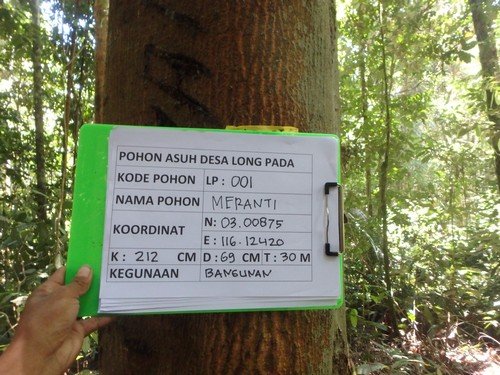 POHON ASUH DESA LONG PADA
KODE POHON LP : 001
NAMA POHON MERANTI
KOORDINAT N: 03.00875
E : 116.12420
K : 212 CM D : 69 CM T : 30 M
KEGUNAAN BANGUNAN